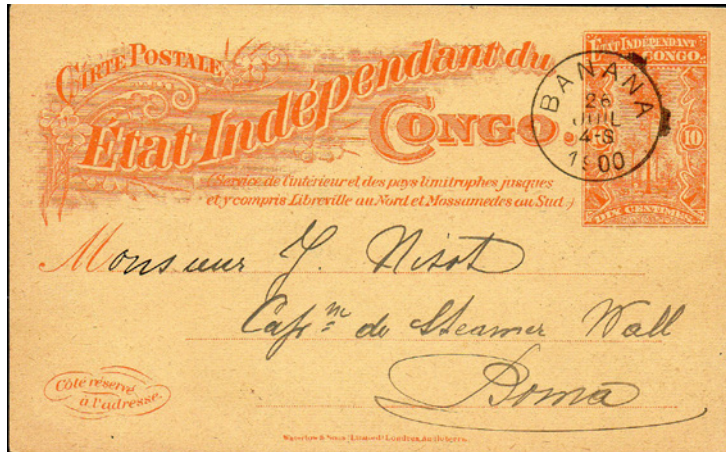 CARTE POSTALE
État Indépendant du
CONGO.
(Service de l'intérieur et des pays limitrophes jusques
et y compris Libreville au Nord et Mossamedes au Sud.)
ETAT INDÉPENDANT
CONGO
10
DIX CENTIMES
BANANA
26
JUIL
4-S
1900
Monsieur J. Nisot
de Steamer Wall
Boma
Côté réservé
à l'adresse.
Waterlow & Sons Limited Londres, Angleterre.